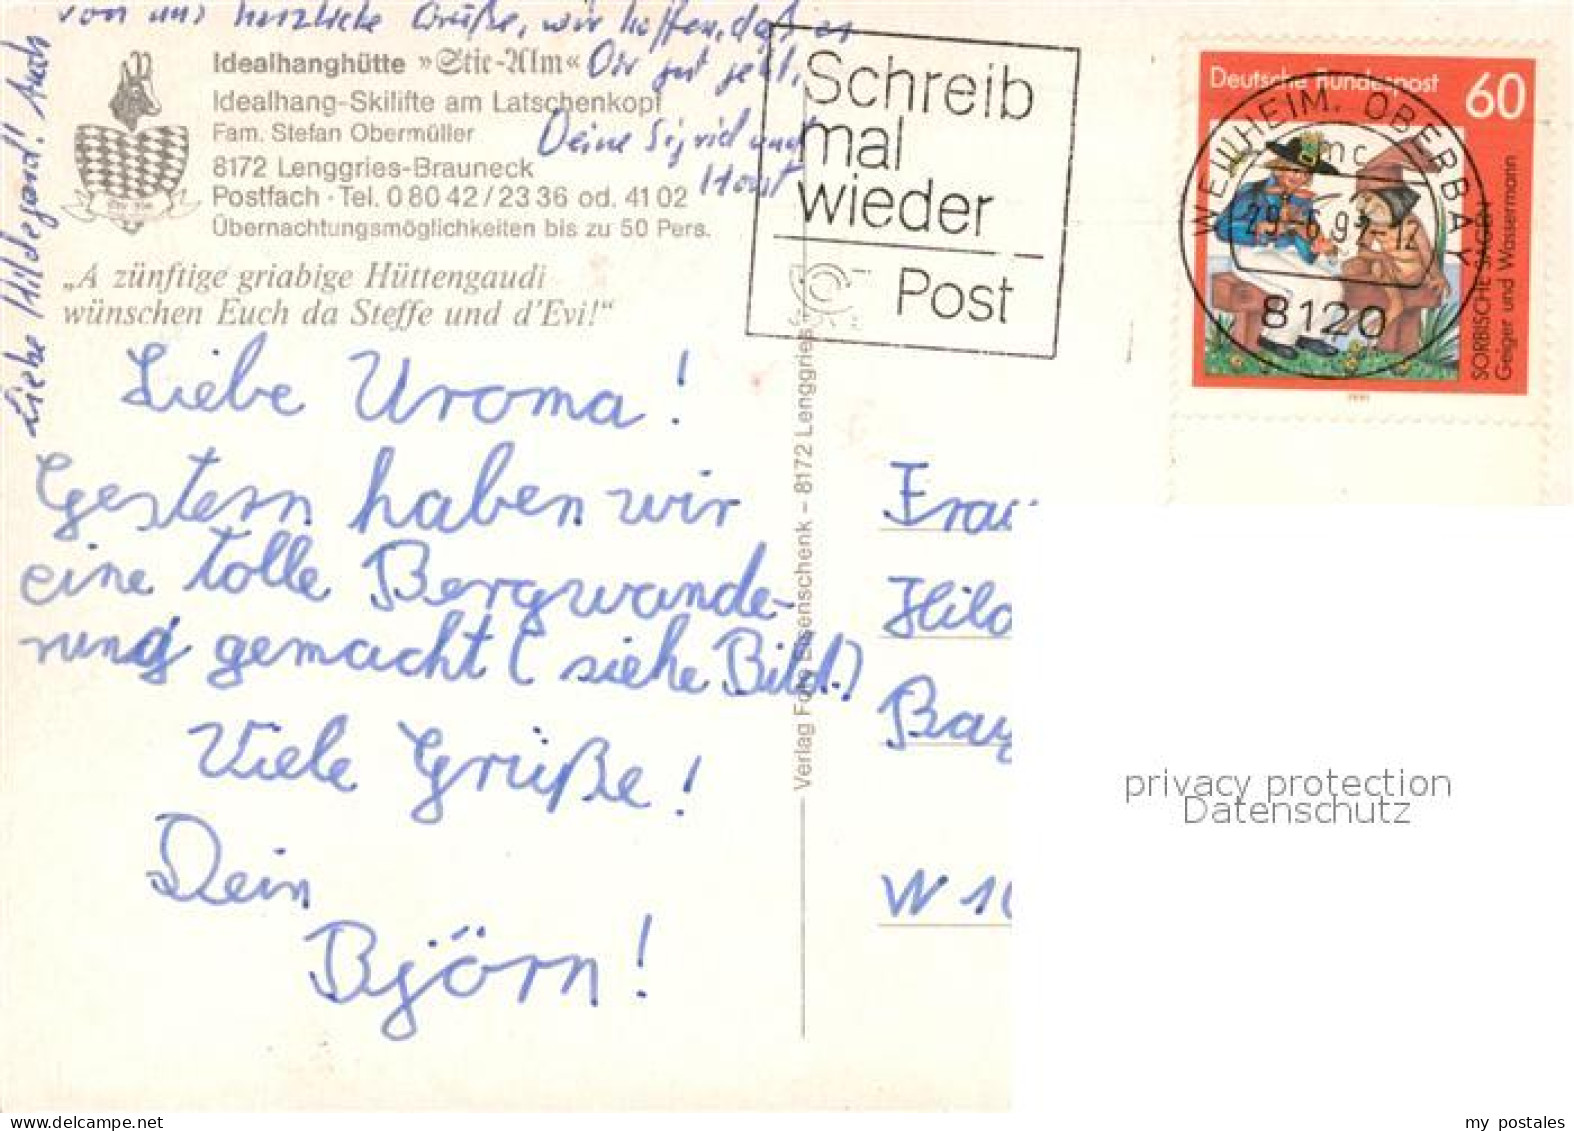 Liebe Hildegard! Auch
von uns herzliche Grüße, wir hoffen, daß es
Dir gut geht.
Deine Sigrid und
Horst
Idealhanghütte »Stie-Alm«
Idealhang-Skilifte am Latschenkopf
Fam. Stefan Obermüller
8172 Lenggries-Brauneck
Postfach · Tel. 0 80 42 / 23 36 od. 41 02
Übernachtungsmöglichkeiten bis zu 50 Pers.
„A zünftige griabige Hüttengaudi
wünschen Euch da Steffe und d'Evi!“
Schreib
mal
wieder
Post
Deutsche Bundespost 60
SORBISCHE SAGE
Geiger und Wassermann
1991
WEILHEIM, OBERBAY
mc
8120
Liebe Uroma!
Gestern haben wir
eine tolle Bergwande-
rung gemacht (siehe Bild!)
Viele Grüße!
Dein
Björn!
Verlag Foto Eisenschenk – 8172 Lenggries
Frau
Hild
Bay
W 10
privacy protection
Datenschutz
my postales